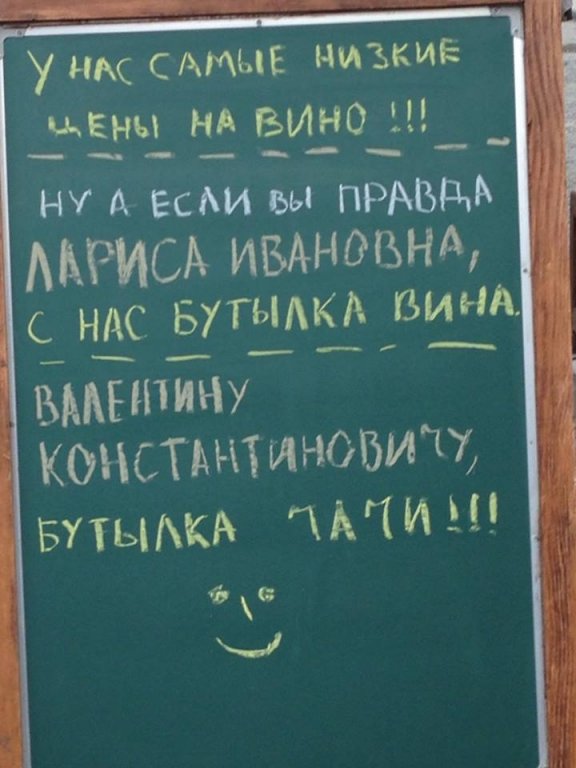 У НАС САМЫЕ НИЗКИЕ
ЦЕНЫ НА ВИНО !!!
НУ А ЕСЛИ ВЫ ПРАВДА
ЛАРИСА ИВАНОВНА,
С НАС БУТЫЛКА ВИНА.
ВАЛЕНТИНУ
КОНСТАНТИНОВИЧУ,
БУТЫЛКА ЧАЧИ!!!